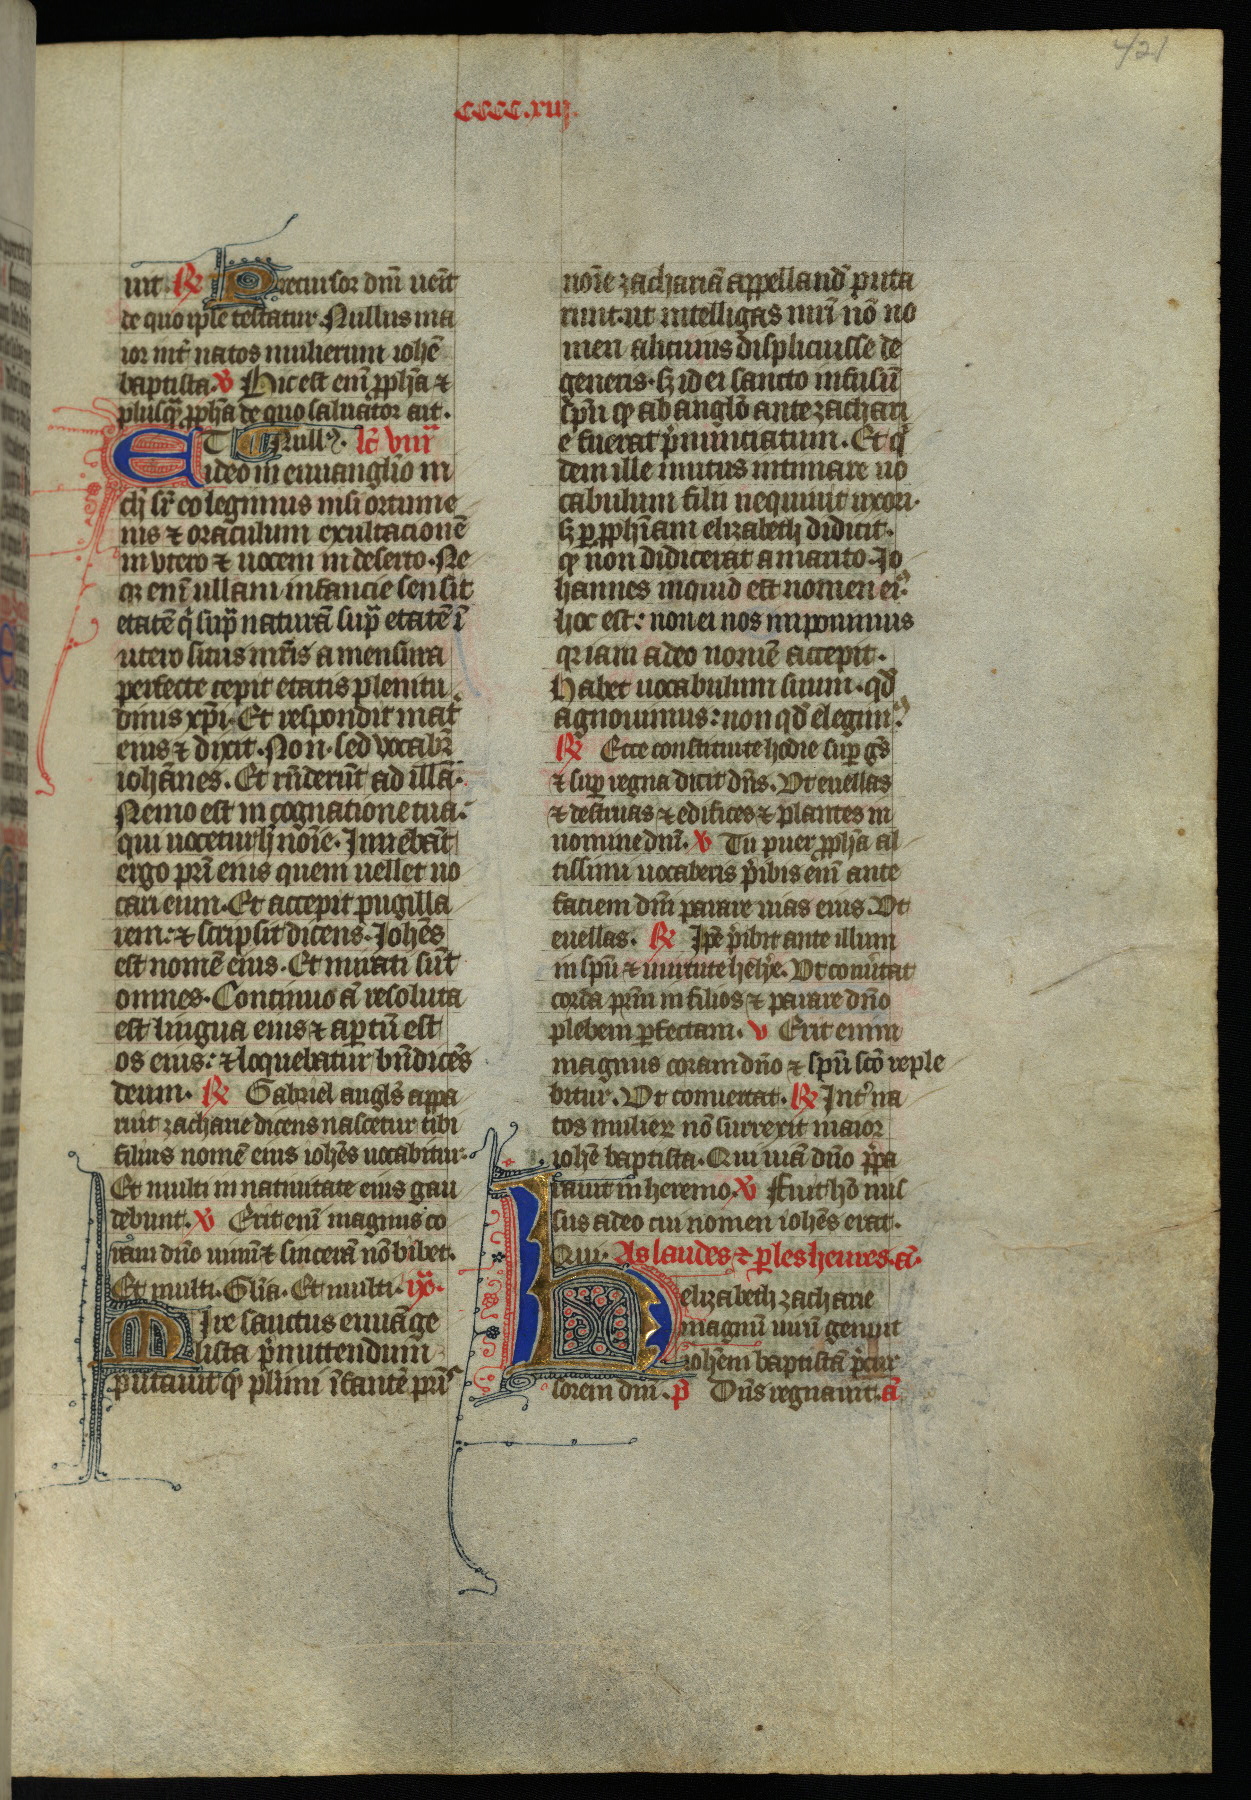 421
CCCC.xiij.
uit. ℟ Precursor dñi uenit
de quo ipse testatur. Nullus ma
ior int̃ natos mulierum iohẽ
baptista. ℣ Hic est enĩ ꝓpħa ⁊
plusqꝫ ꝓpħa de quo saluator ait.
Null9. lc̃ viiͣ
ET ideo in euuanglĩo in
eris ⁊ oraculum exultacionẽ
in vtero ⁊ uocem in deserto. Ne
qꝫ enĩ ullam infancie sensit
etatẽ q̃ sup̃ naturã sup̃ etatẽ ĩ
utero situs mr̃is a mensura
perfecte cepit etatis plenitu
dinis xp̃i. Et respondit mat̃
eius ⁊ dixit. Non. sed vocabit̃
iohãnes. Et rñderũt ad illã.
Nemo est in cognatione tua:
qui uocetur h̃ noĩe. Innuebãt
ergo pr̃i eius quem uellet uo
cari eum. Et accepit pugilla
rem: ⁊ scripsit dicens. Johẽs
est nomẽ eius. Et mirati sũt
omnes. Continuo ã resoluta
est lingua eius ⁊ aptũ est
os eius: ⁊ loquebatur bñdicẽs
deum. ℟ Gabriel angl̃s appa
ruit zacharie dicens nascetur tibi
filius nomẽ eius iohẽs uocabitur.
Et multi in natiuitate eius gau
debunt. ℣ Erit enĩ magnus co
ram dño uinũ ⁊ sincerã nõ bibet.
Et multi. Gl̃ia. Et multi. ixͣ.
Mire sanctus euuãge
lista p̃mittendum
putauit qꝫ plurimi ĩfantẽ pr̃is
noĩe zachariã appellandũ puta
runt. ut intelligas mr̃i nõ no
men alicuius displicuisse de
generis. sꝫ id ei sancto infusũ
spũ qꝫ ab anglõ ante zachari
e fuerat p̃nunciatum. Et q̃
dem ille mutus intimare uo
cabulum filii nequiuit uxori.
sꝫ ꝑ ꝓphĩam elizabeth didicit.
qꝫ non didicerat a marito. Jo
hannes inquid est nomen ei9.
hoc est: non ei nos imponimus
q̃ iam a deo nomẽ accepit.
Habet uocabulum suum. qd̃
agnouimus: non qd̃ elegim9.
℟ Ecce constitui te hodie sup gẽs
⁊ sup regna dicit dñs. Vt euellas
⁊ destruas ⁊ edifices ⁊ plantes in
nomine dñi. ℣ Tu puer ꝓpħa al
tissimi uocaberis p̃ibis enĩ ante
faciem dñi parare uias eius. Vt
euellas. ℟ Ip̃e p̃ibit ante illum
in spũ ⁊ uirtute helye. Vt conũtat
corda pr̃m in filios ⁊ parare dño
plebem ꝑfectam. ℣ Erit enim
magnus coram dño ⁊ spũ scõ reple
bitur. Vt conuertat. ℟ Int̃ na
tos mulieꝝ nõ surrexit maior
iohẽ baptista. Qui uiã dño p̃pa
rauit in heremo. ℣ Fuit hõ mis
sus a deo cui nomen iohẽs erat.
Qui. As laudes ⁊ ꝑ les heures. ã.
Elizabeth zacharie
magnũ uirũ genuit
iohẽm baptistã p̃cur
sorem dñi. p̃ Dñs regnauit. ã.